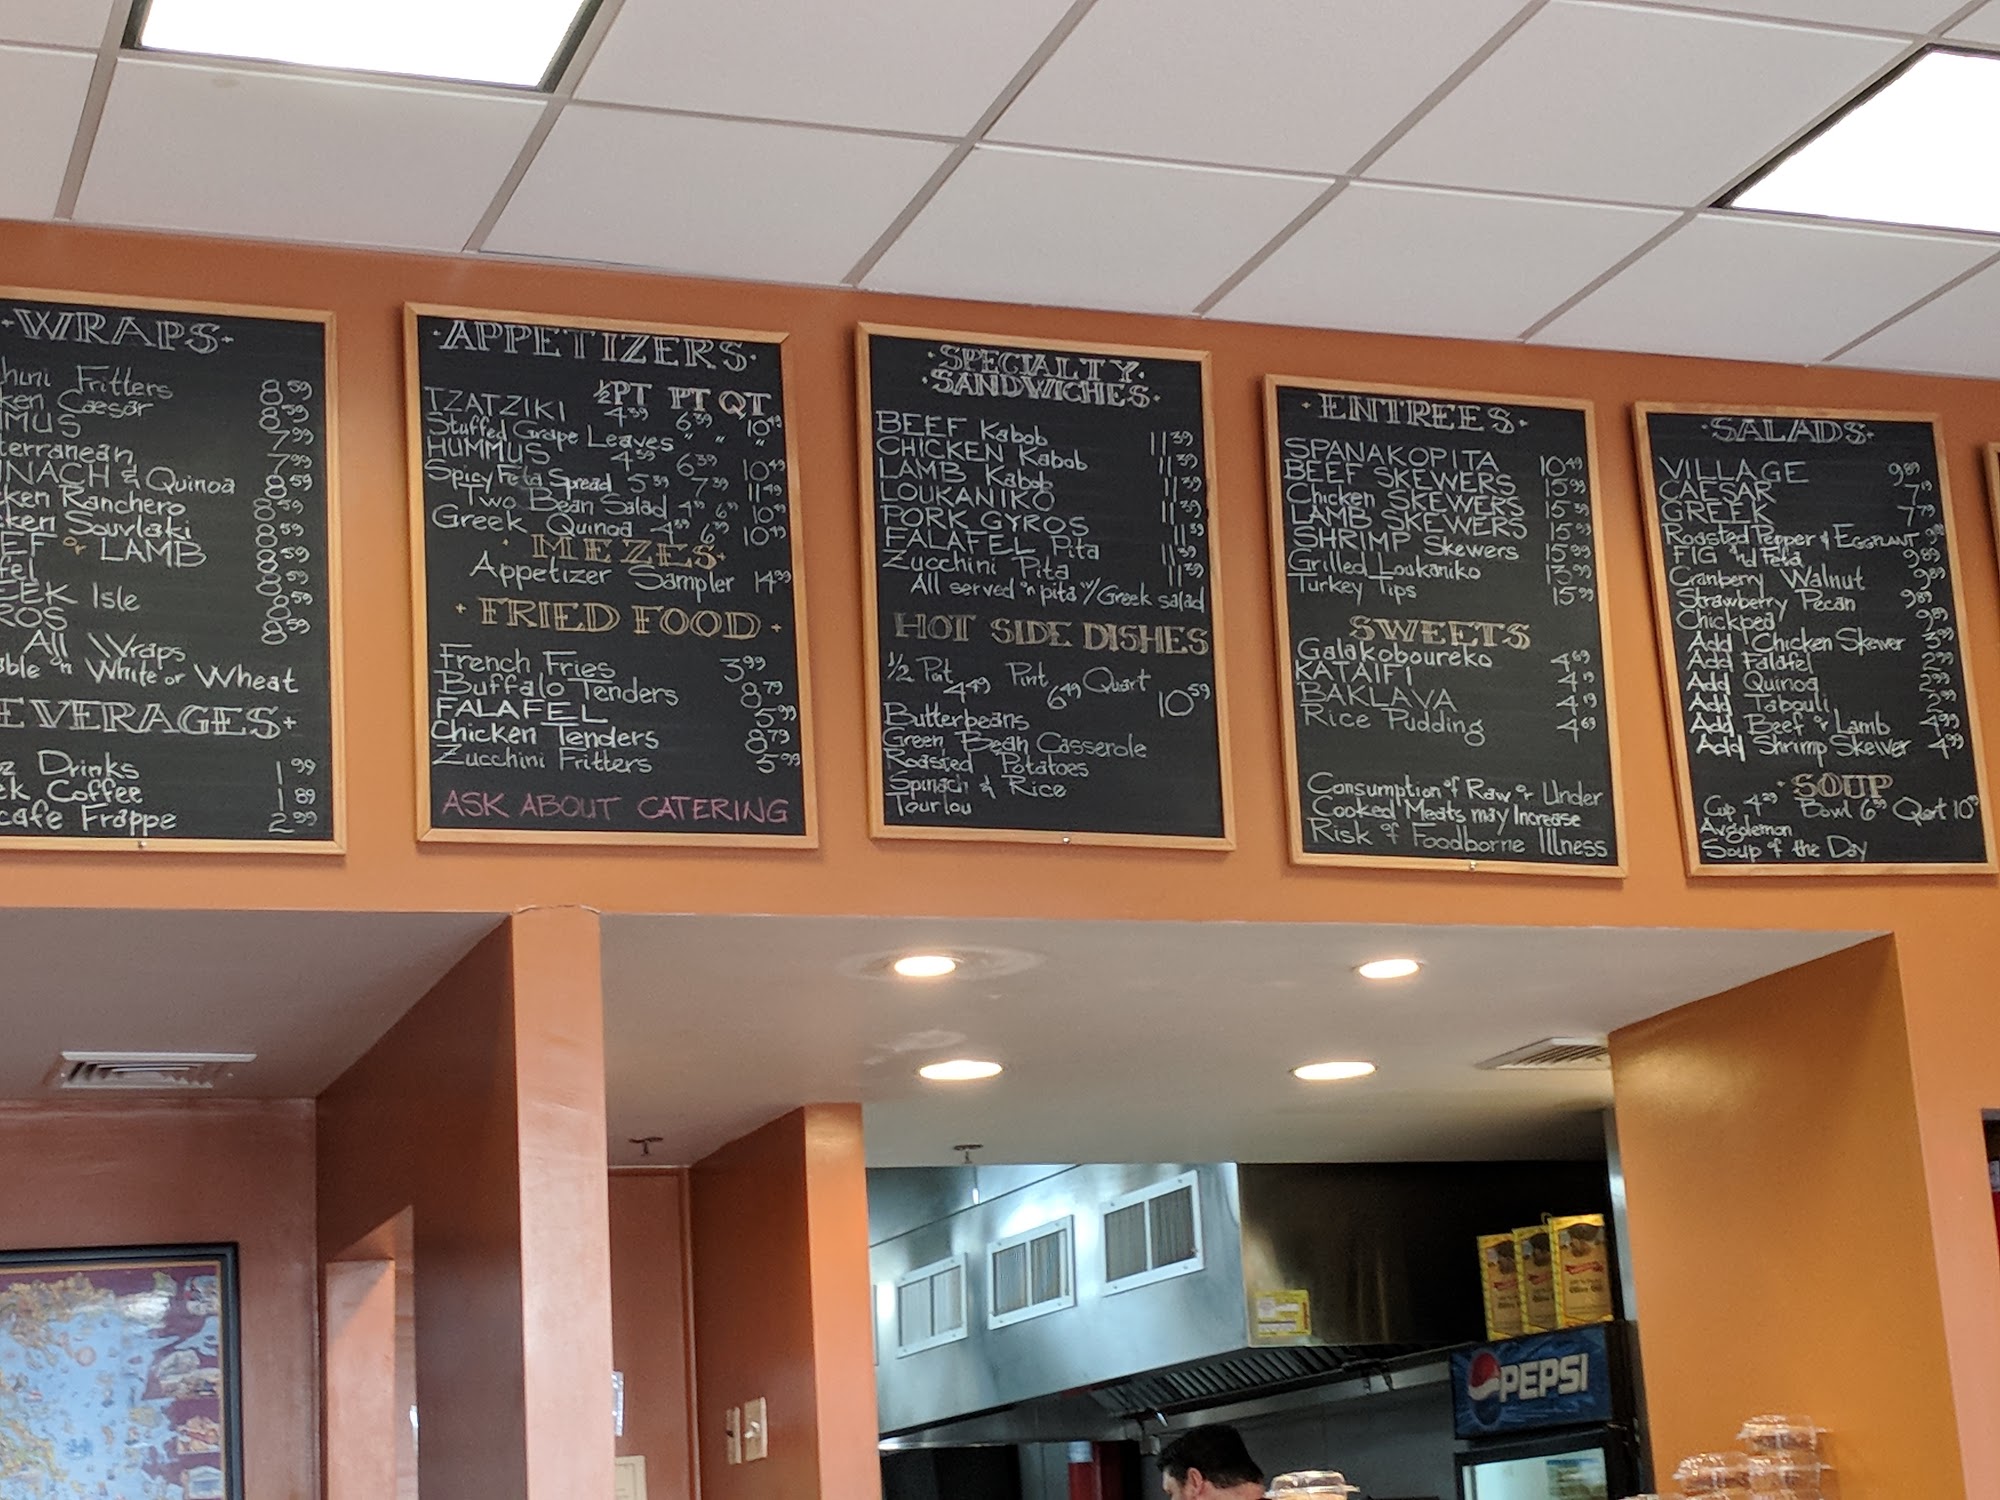 ·WRAPS·
hini Fritters 8.59
ken Caesar 8.59
MUS 7.99
terranean 7.99
INACH & Quinoa 8.59
ken Ranchero 8.59
cken Souvlaki 8.59
EF or LAMB 8.59
fel 8.59
EEK Isle 8.59
ROS 8.59
All Wraps
able on White or Wheat
EVERAGES·
z Drinks 1.99
ek Coffee 1.89
cafe Frappe 2.99
·APPETIZERS·
½PT PT QT
TZATZIKI 4.39 6.39 10.49
Stuffed Grape Leaves " " "
HUMMUS 4.39 6.39 10.49
Spicy Feta Spread 5.39 7.39 11.49
Two Bean Salad 4.39 6.39 10.49
Greek Quinoa 4.39 6.39 10.49
·MEZES·
Appetizer Sampler 14.99
·FRIED FOOD·
French Fries 3.99
Buffalo Tenders 8.79
FALAFEL 5.99
Chicken Tenders 8.79
Zucchini Fritters 5.99
ASK ABOUT CATERING
·SPECIALTY·
·SANDWICHES·
BEEF Kabob 11.39
CHICKEN Kabob 11.39
LAMB Kabob 11.39
LOUKANIKO 11.39
PORK GYROS 11.39
FALAFEL Pita 11.39
Zucchini Pita 11.39
All served on pita w/Greek salad
HOT SIDE DISHES
1/2 Pint 4.49 Pint 6.49 Quart 10.59
Butterbeans
Green Bean Casserole
Roasted Potatoes
Spinach & Rice
Tourlou
·ENTREES·
SPANAKOPITA 10.49
BEEF SKEWERS 15.99
Chicken SKEWERS 15.39
LAMB SKEWERS 15.99
SHRIMP Skewers 15.99
Grilled Loukaniko 13.99
Turkey Tips 15.99
SWEETS
Galakoboureko 4.69
KATAIFI 4.19
BAKLAVA 4.19
Rice Pudding 4.69
Consumption of Raw or Under
Cooked Meats may Increase
Risk of Foodborne Illness
·SALADS·
VILLAGE 9.89
CAESAR 7.19
GREEK 7.79
Roasted Pepper & EGGPLANT 9.89
FIG and Feta 9.89
Cranberry Walnut 9.89
Strawberry Pecan 9.89
Chickpea 9.89
Add Chicken Skewer 3.99
Add Falafel 2.99
Add Quinoa 2.99
Add Tabouli 2.99
Add Beef or Lamb 4.99
Add Shrimp Skewer 4.99
·SOUP
Cup 4.29 Bowl 6.39 Quart 10
Avgolemon
Soup of the Day
PEPSI